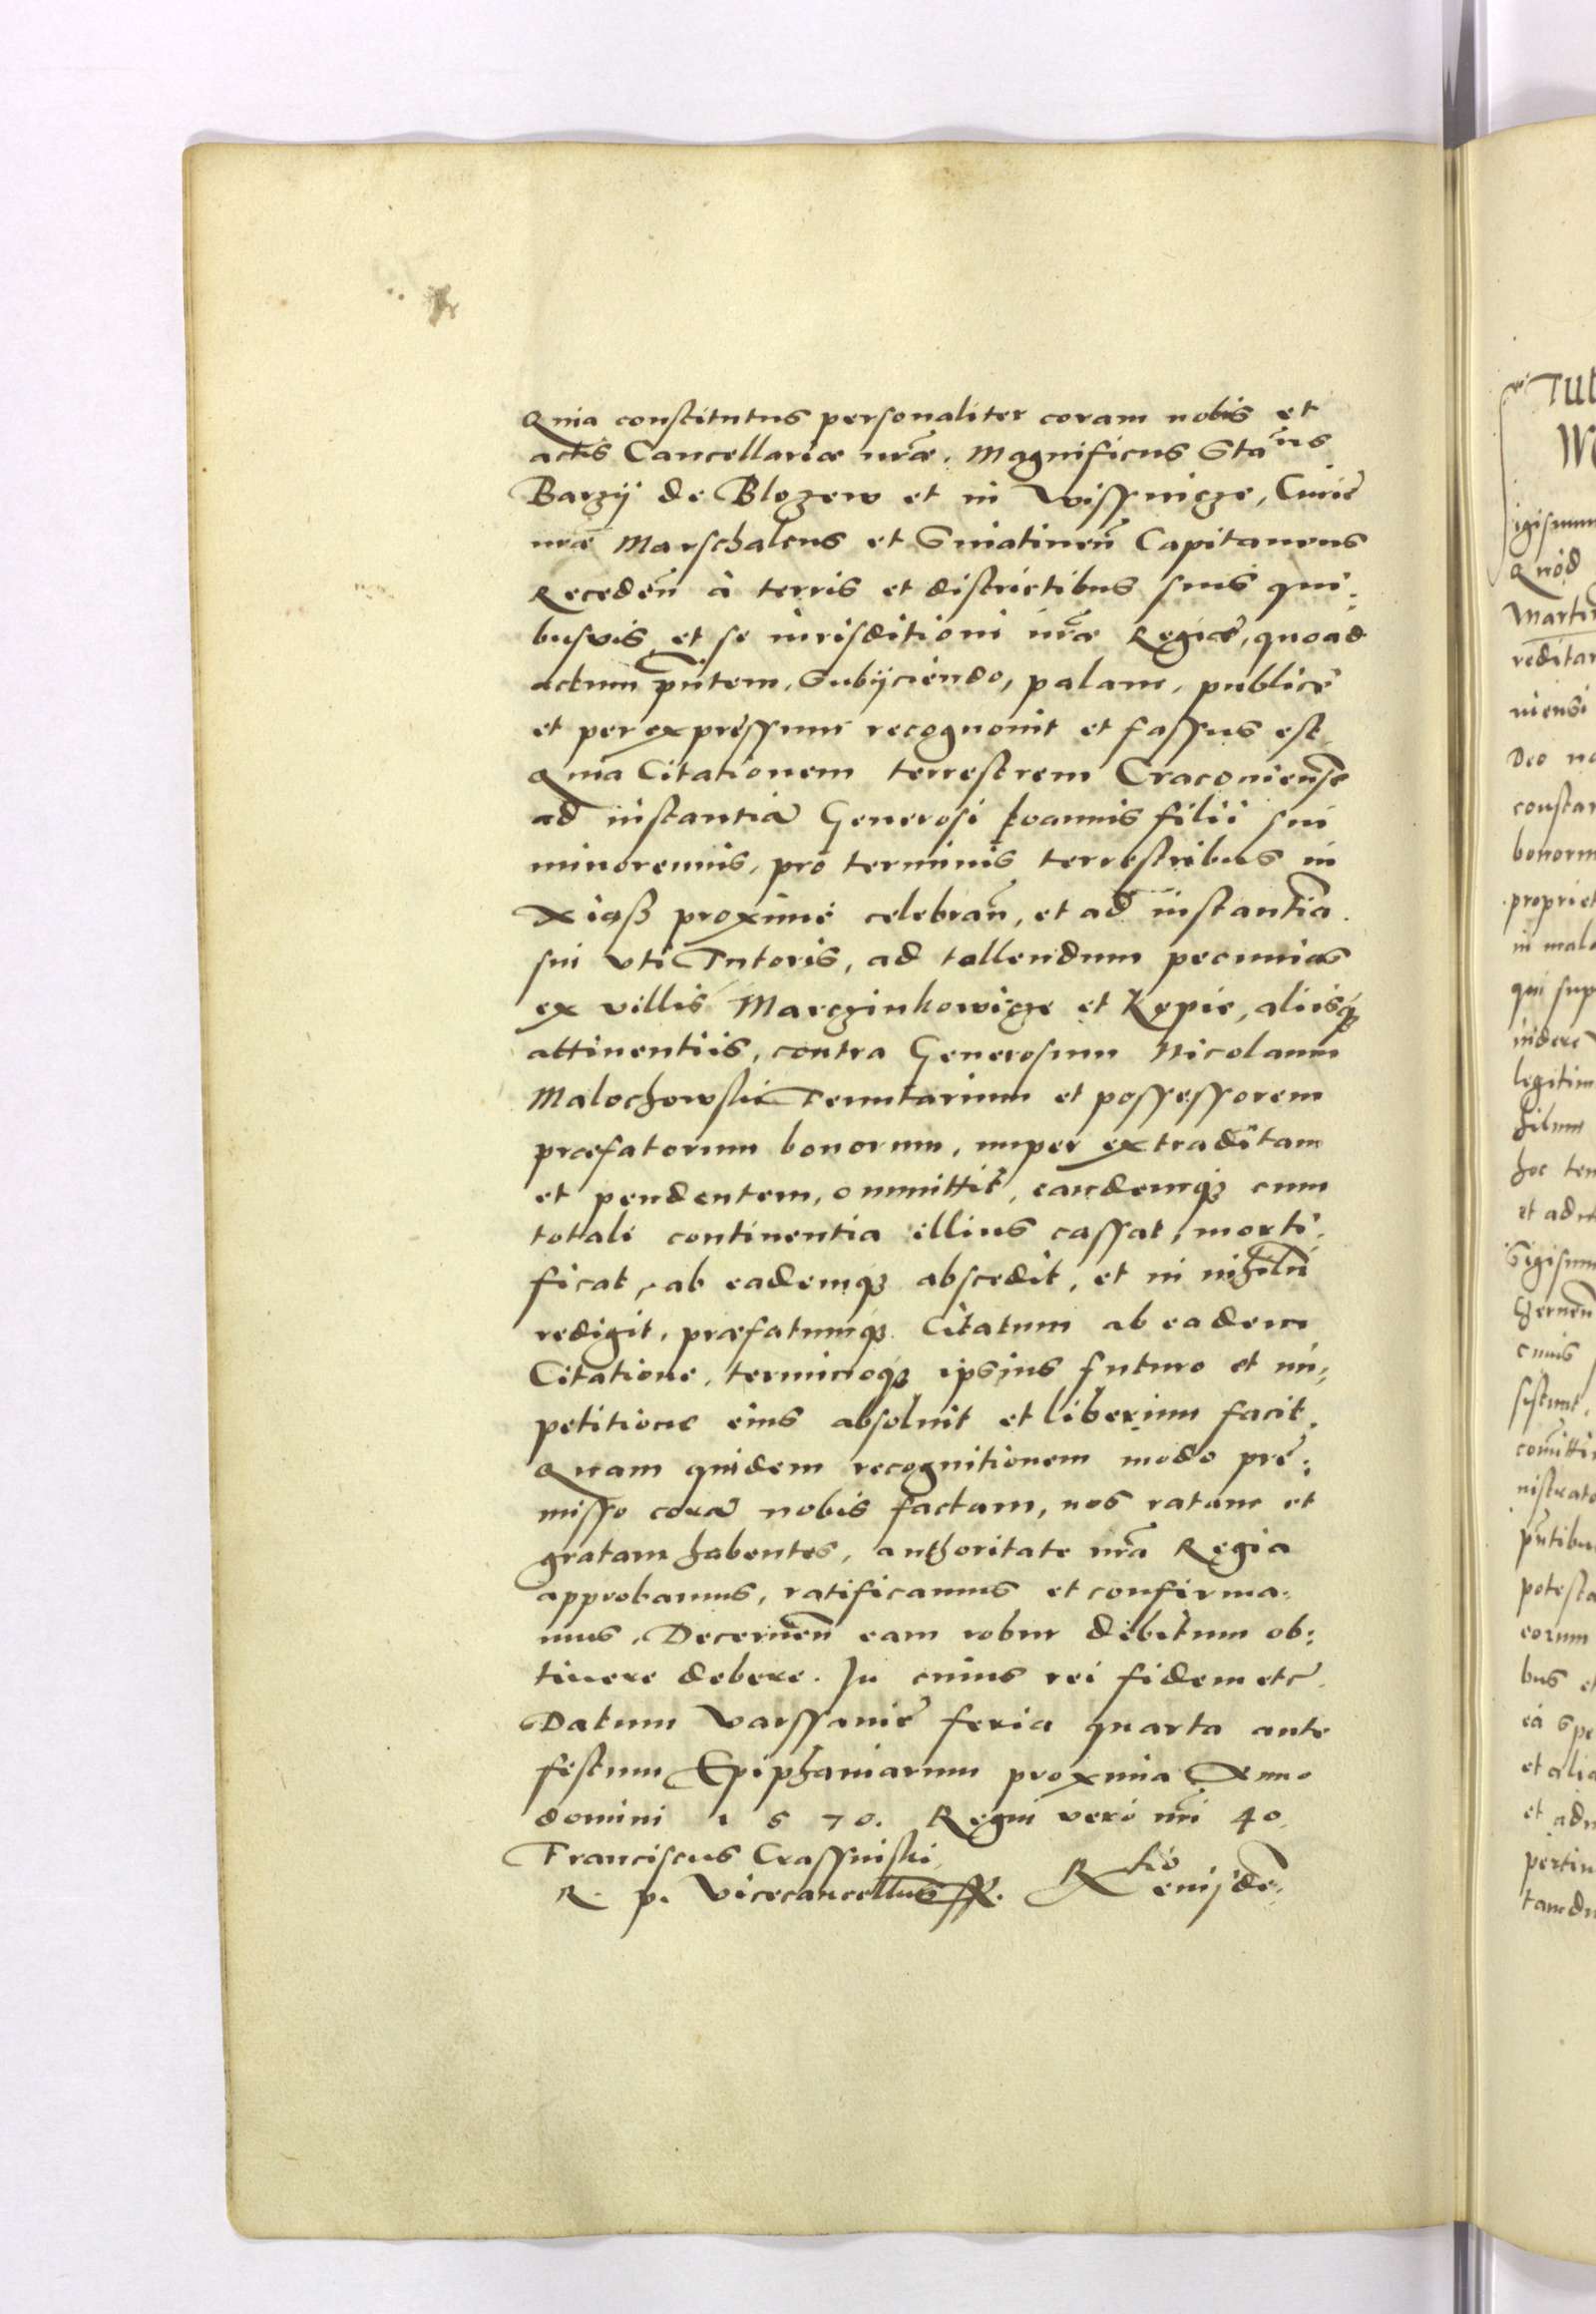 Quia constitutus personaliter coram nobis et
actis Cancellariæ nr̃æ. Magnificus Sta͠us
Barzÿ de Blozew et in Wissnicze, Curię
nr̃æ Marschalcus et Sniatineñ Capitaneus
Recedeñ à terris et districtibus suis qui-
busvis, et se iurisditioni nr̃æ Regiæ, quoad
actum pñtem, Subÿciendo, palam, publicè
et per expressum recognovit et fassus est
Quia Citationem terrestrem Cracovieñse
ad instantiã Generosi Ioannis filii sui
minorennis, pro terminis terrestribus in
Xiąß proximè celebrañ, et ad instantĩa
sui uti Tutoris, ad tollendum pecunias
ex villis Marczinkowicze et Kępie, aliisq3
attinentiis, contra Generosum Nicolaum
Malochowski Tenutarium et possessorem
præfatorum bonorum, nuper extraditam
et pendentem, ommittit, eandemq3 cum
totali continentia illius cassat, morti-
ficat, ab eademq3 abscedit, et in nihilũ
redigit, præfatumq3 Citatum ab eadem
Citatione, terminoq3 ipsius futuro et im-
petitione eius absoluit et liberum facit.
Quam quidem recognitionem modo prę-
misso corã nobis factam, nos ratam et
gratam habentes, authoritate nr̃a Regia
approbamus, ratificamus et confirma-
mus, Decerneñ eam robur debitum ob-
tinere debere. In cuius rei fidem etc̃.
Datum Varssavię feria quarta ante
festum Epiphaniarum proxima Anno
domini 1570. Regni verò nr̃i 40.
Franciscus Crassinski
R. p. Vicecancellarius ss. R tio eiusdẽ